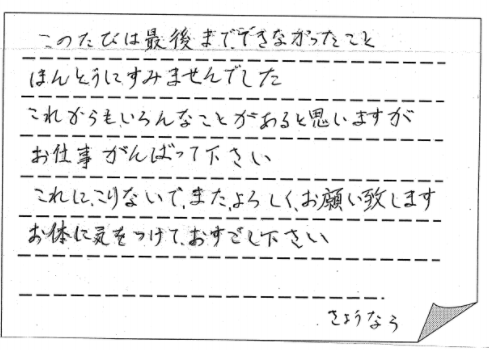 このたびは最後まで、できなかったこと
ほんとうにすみませんでした
これからも、いろんなことがあると思いますが
お仕事がんばって下さい
これに、こりないで、また、よろしく、お願い致します
お体に気をつけて、おすごし下さい
さようなら